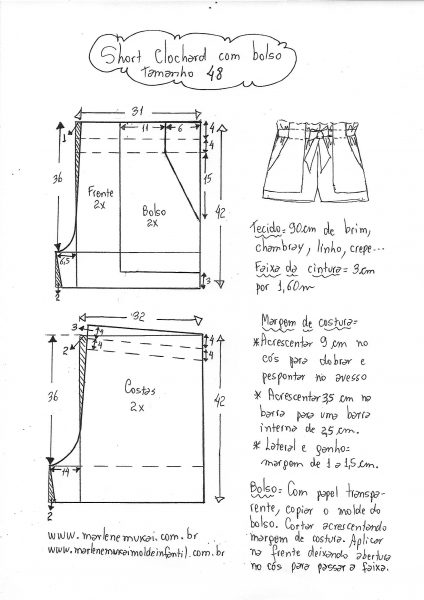 Short Clochard com bolso
Tamanho 48
31
11
6
4
4
1
15
36
Frente
2x
Bolso
2x
42
6,5
3
2
Tecido= 90cm de brim,
chambray, linho, crepe...
Faixa da cintura= 3cm
por 1,60m
32
3
4
4
4
4
2
36
Costas
2x
42
14
2
Margem de costura=
* Acrescentar 9 cm no
cós para dobrar e
pespontar no avesso
* Acrescentar 3,5 cm na
barra para uma barra
interna de 2,5 cm.
* Lateral e ganho=
margem de 1 a 1,5cm.
Bolso= Com papel transpa-
rente, copiar o molde do
bolso. Cortar acrescentando
margem de costura. Aplicar
na frente deixando abertura
no cós para passar a faixa.
www.marlenemukai.com.br
www.marlenemukaimoldeinfantil.com.br